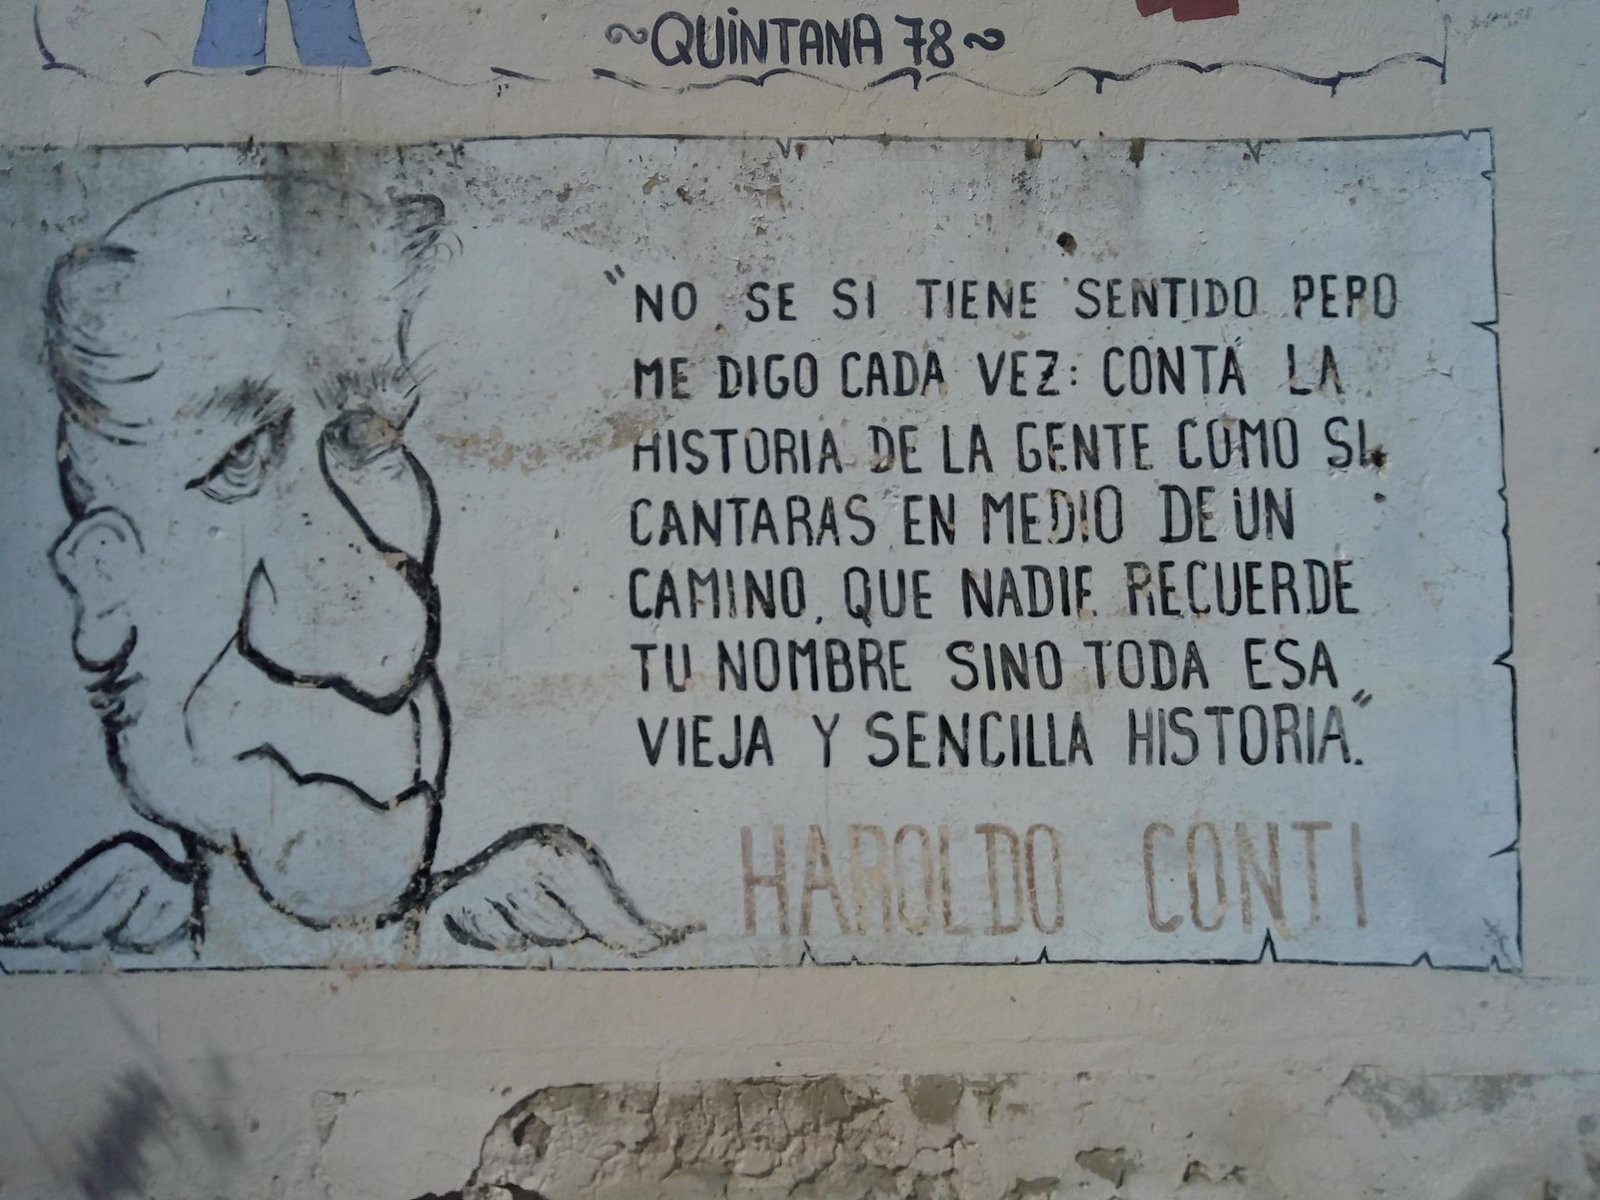 ~QUINTANA 78~
"NO SE SI TIENE SENTIDO PERO
ME DIGO CADA VEZ: CONTÁ LA
HISTORIA DE LA GENTE COMO SI
CANTARAS EN MEDIO DE UN
CAMINO, QUE NADIE RECUERDE
TU NOMBRE SINO TODA ESA
VIEJA Y SENCILLA HISTORIA."
HAROLDO CONTI